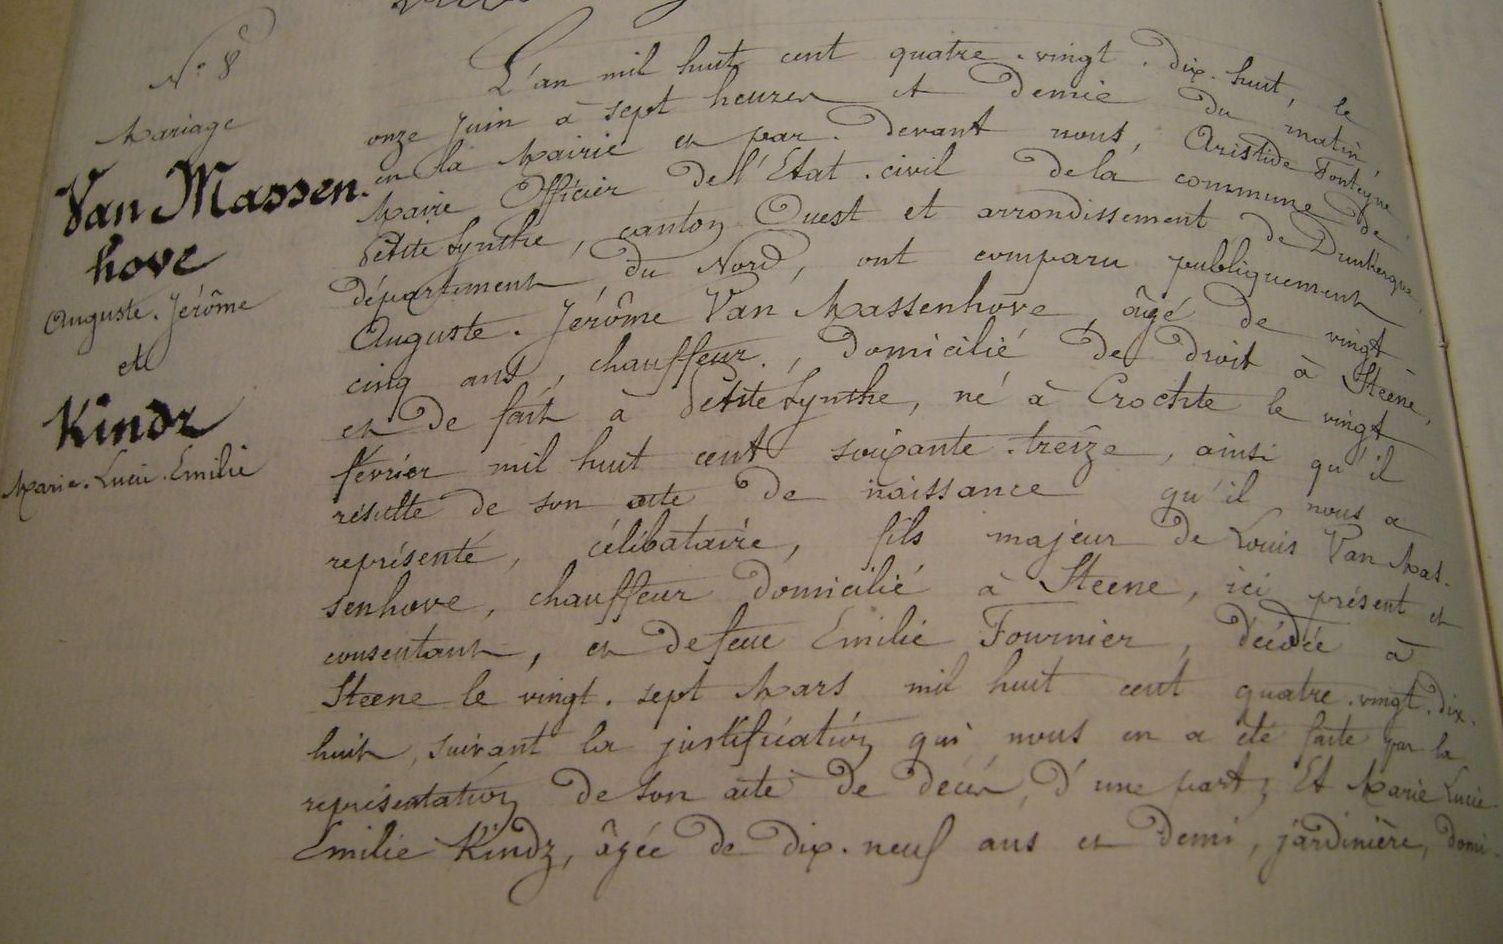 N° 8
Mariage
Van Massen.
hove
Auguste. Jérôme
et
Kindz
Marie. Lucie. Emilie
L'an mil huit cent quatre. vingt. dix. huit, le
onze Juin à sept heures et demie du matin,
en la Mairie et par. devant nous, Aristide Fonteyne
Maire Officier de l'Etat. civil de la commune de
Petite Synthe, canton Ouest et arrondissement de Dunkerque,
département du Nord, ont comparu publiquement
Auguste. Jérôme Van Massenhove, âgé de vingt
cinq ans, chauffeur, domicilié de droit à Steene,
et de fait à Petite Synthe, né à Crochte le vingt
février mil huit cent soixante. treize, ainsi qu'il
résulte de son acte de naissance qu'il nous a
représenté, célibataire, fils majeur de Louis Van Mas.
senhove, chauffeur domicilié à Steene, ici présent et
consentant, et de feue Emilie Fournier, décédée à
Steene le vingt. sept Mars mil huit cent quatre. vingt. dix.
huit, suivant la justification qui nous en a été faite par la
représentation de son acte de décès, d'une part; Et Marie Lucie.
Emilie Kindz, âgée de dix. neuf ans et demi, jardinière, domi.